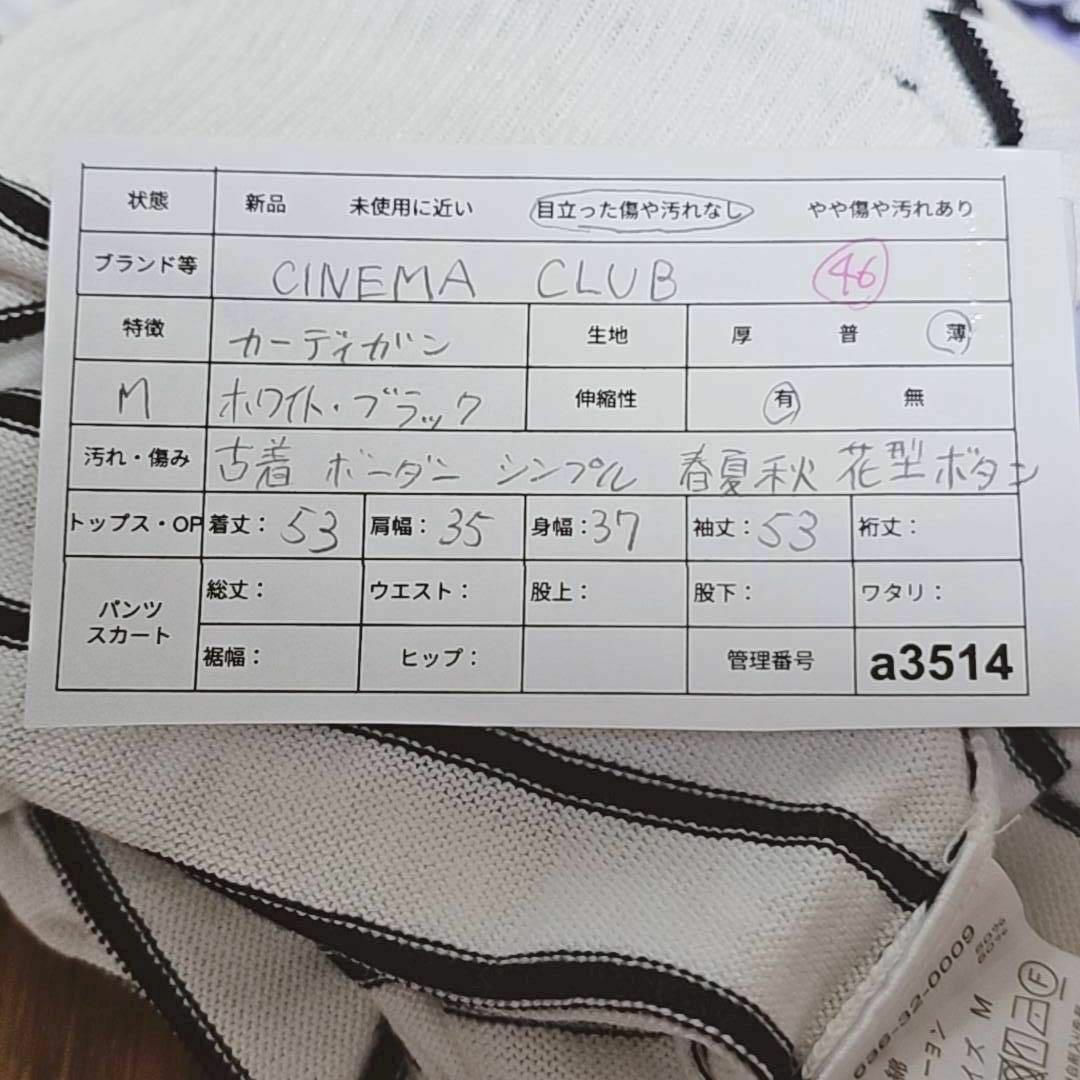 状態 新品 未使用に近い 目立った傷や汚れなし やや傷や汚れあり
ブランド等 CINEMA CLUB 46
特徴 カーディガン 生地 厚 普 薄
M ホワイト・ブラック 伸縮性 有 無
汚れ・傷み 古着 ボーダー シンプル 春夏秋 花型ボタン
トップス・OP 着丈: 53 肩幅: 35 身幅: 37 袖丈: 53 裄丈:
パンツ スカート 総丈: ウエスト: 股上: 股下: ワタリ:
裾幅: ヒップ: 管理番号 a3514
-32-0009
綿
ーヨン
イズ M
F